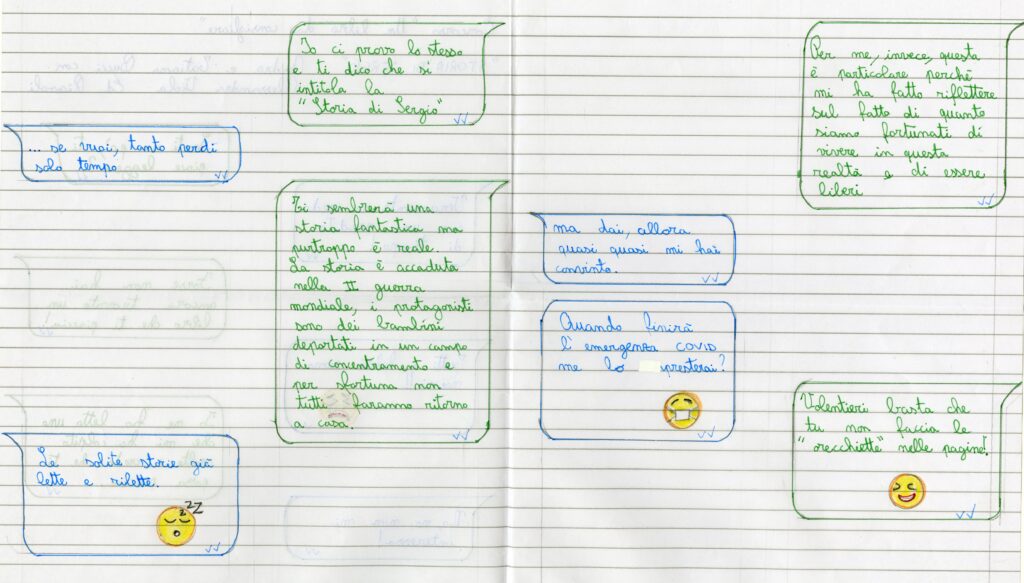 Io ci provo lo stesso
e ti dico che si
intitola la
"Storia di Sergio"
... se vuoi, tanto perdi
solo tempo
Ti sembrerà una
storia fantastica ma
purtroppo è reale.
La storia è accaduta
nella II guerra
mondiale, i protagonisti
sono dei bambini
deportati in un campo
di concentramento e
per sfortuna non
tutti faranno ritorno
a casa.
Le solite storie già
lette e rilette.
zzZ
Per me, invece, questa
è particolare perché
mi ha fatto riflettere
sul fatto di quanto
siamo fortunati di
vivere in questa
realtà e di essere
liberi
ma dai, allora
quasi quasi mi hai
convinto.
Quando finirà
l'emergenza COVID
me lo presterai?
Volentieri basta che
tu non faccia le
"orecchiette" nelle pagine!